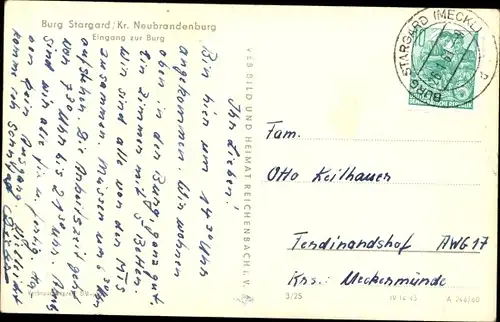 Burg Stargard/Kr. Neubrandenburg
Eingang zur Burg
Ihr Lieben!
Bin hier um 14.30 Uhr
angekommen. Wir wohnen
oben in der Burg, ganz gut.
Ein Zimmer mit 5 Betten.
Wir sind alle von den MTS
zusammen. Müssen um 6.30 Uhr
aufstehen. Die Arbeitszeit geht
von 7.30 Uhr bis 21.30 Uhr. Dann
sind wir alle
kein Ausgang. Vielleicht
komme ich Sonntag
VEB BILD UND HEIMAT REICHENBACH I. V.
BURG STARGARD (MECKL)
10
Fam.
Otto Keilhauer
Ferdinandshof AWG 17
Krs.: Ueckermünde
3/25
IV 14 45
A 244/60